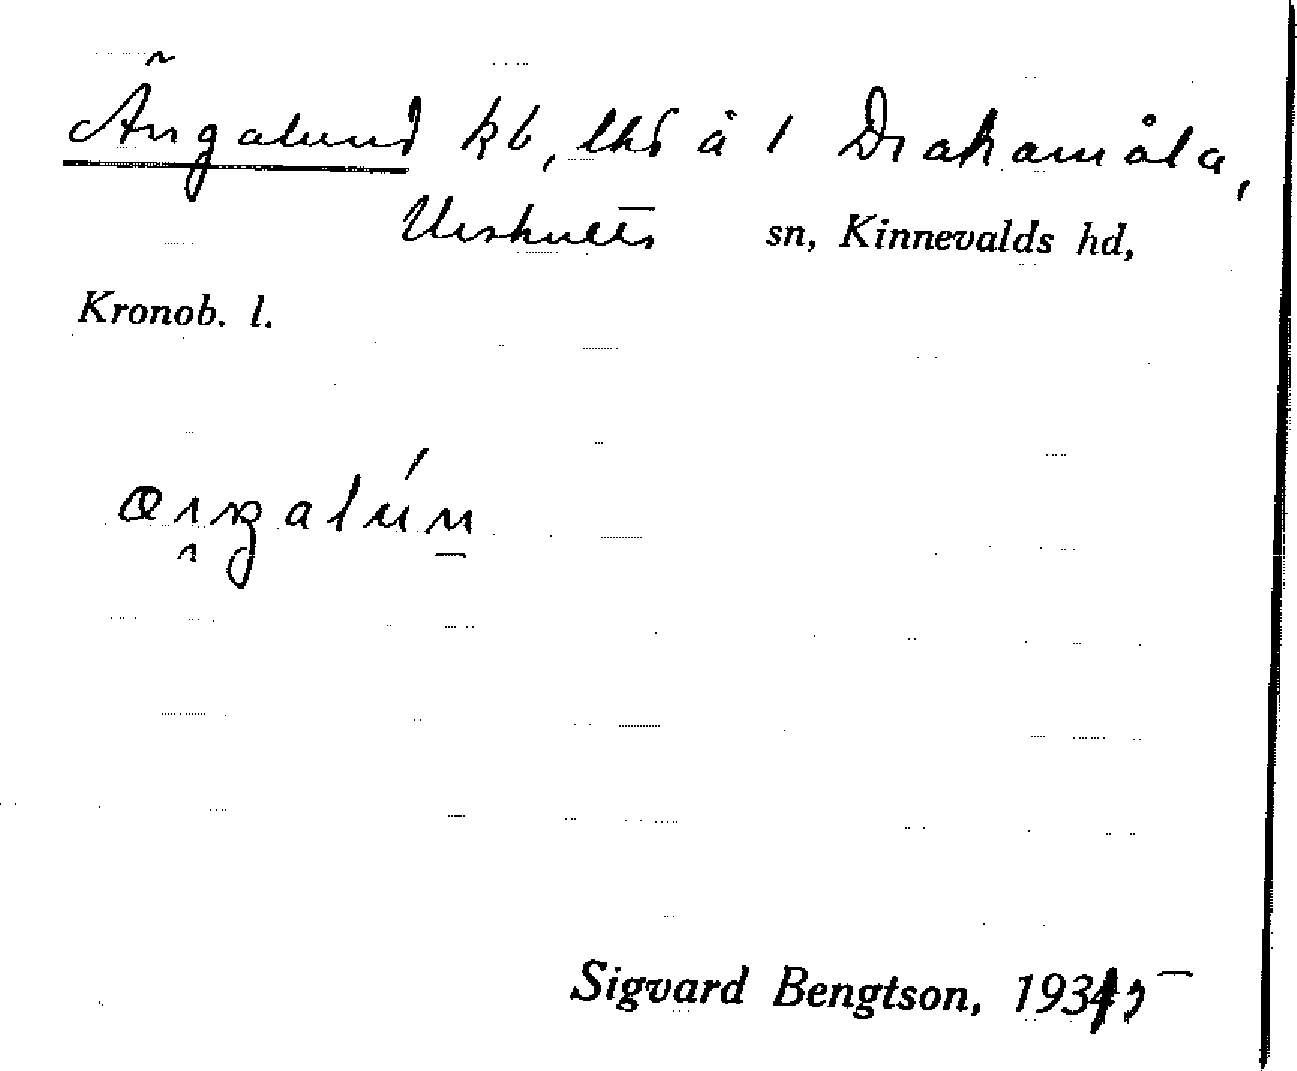 Ängalund kb, lhd å 1 Drakamåla,
Urshults sn, Kinnevalds hd,
Kronob. l.
Sigvard Bengtson, 1935